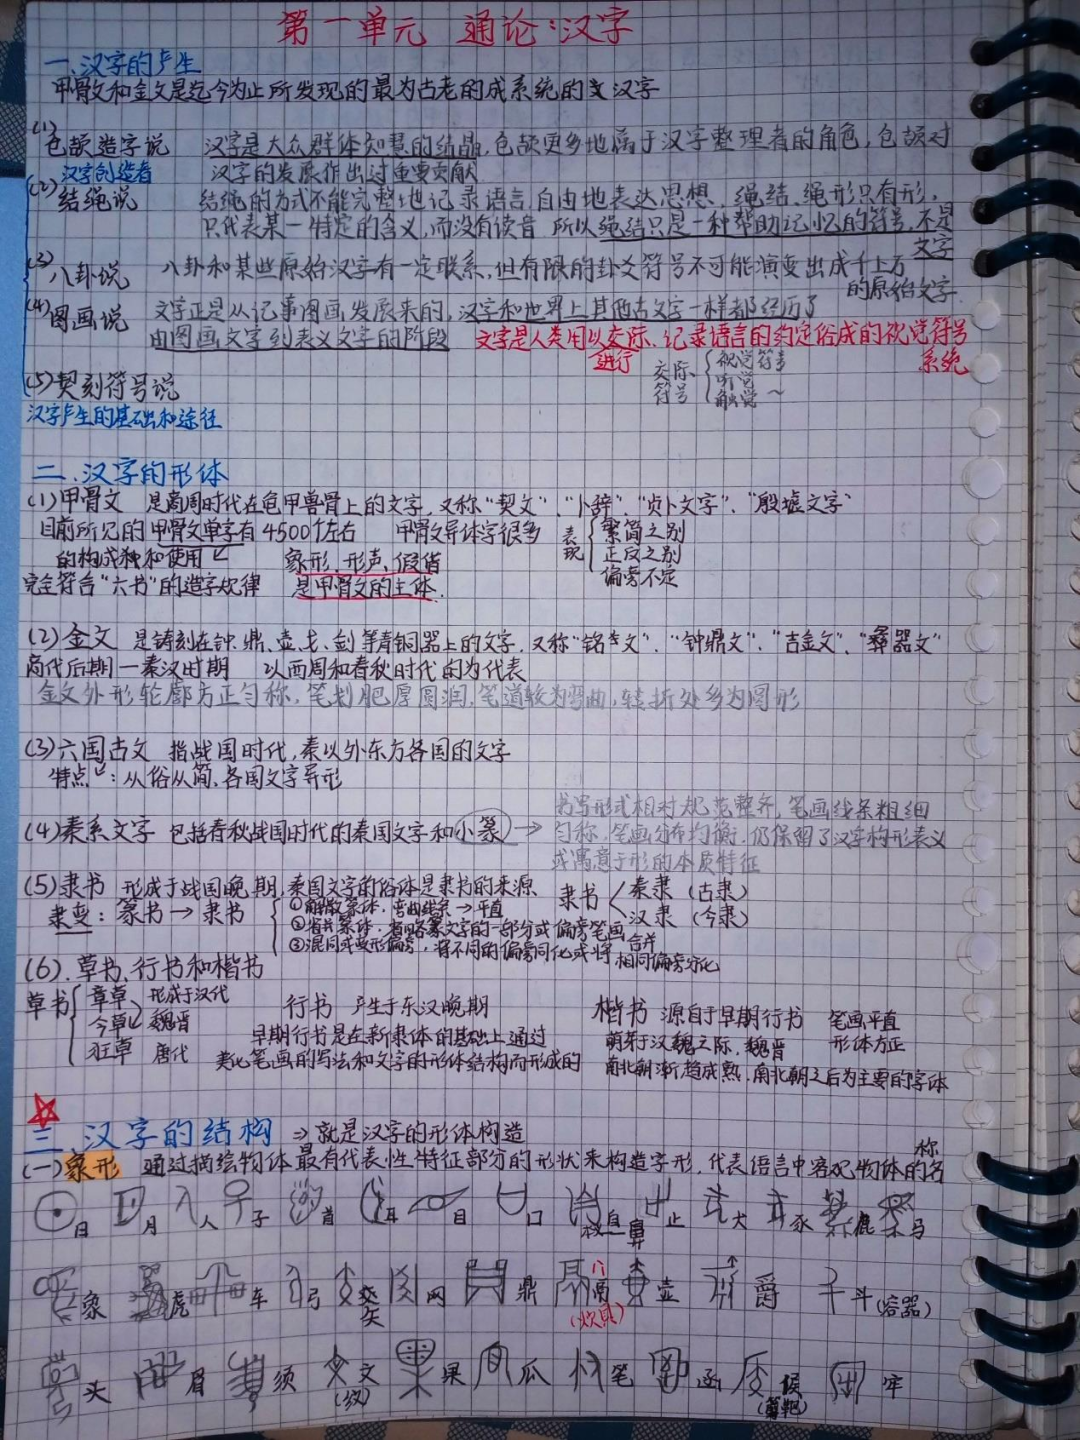 第一单元 通论:汉字
一、汉字的产生
甲骨文和金文是迄今为止所发现的最为古老的成系统的汉字
(1)仓颉造字说 汉字是大众群体智慧的结晶,仓颉更多地属于汉字整理者的角色,仓颉对
汉字创造者 汉字的发展作出过重要贡献
(2)结绳说 结绳的方式不能完整地记录语言,自由地表达思想,绳结、绳形只有形,
只代表某一特定的含义,而没有读音 所以绳结只是一种帮助记忆的符号,不是
文字
(3)八卦说 八卦和某些原始汉字有一定联系,但有限的卦爻符号不可能演变出成千上万
的原始文字
(4)图画说 文字正是从记事图画发展来的,汉字和世界上其他古文字一样都经历了
由图画文字到表义文字的阶段 文字是人类用以交际、记录语言的约定俗成的视觉符号
进行 系统
(5)契刻符号说 交际符号 视觉符号
听觉
触觉~
汉字产生的基础和途径
二、汉字的形体
(1)甲骨文 是商周时代在龟甲兽骨上的文字,又称“契文”、“卜辞”、“贞卜文字”、“殷墟文字”
目前所见的甲骨文单字有4500个左右 甲骨文异体字很多 表现 繁简之别
正反之别
偏旁不定
的构成和使用 象形、形声、假借
完全符合“六书”的造字规律 是甲骨文的主体.
(2)金文 是铸刻在钟、鼎、壶、戈、剑等青铜器上的文字,又称“铭文”、“钟鼎文”、“吉金文”、“彝器文”
商代后期—秦汉时期 以西周和春秋时代的为代表
金文外形轮廓方正匀称,笔划肥厚圆润,笔道较为弯曲,转折处多为圆形
(3)六国古文 指战国时代,秦以外东方各国的文字
特点:从俗从简、各国文字异形
(4)秦系文字 包括春秋战国时代的秦国文字和小篆 → 书写形式相对规范整齐,笔画线条粗细
匀称,笔画分布均衡,仍保留了汉字构形表义
或寓意于形的本质特征
(5)隶书 形成于战国晚期,秦国文字的俗体是隶书的来源 隶书 秦隶 (古隶)
汉隶 (今隶)
隶变:篆书→隶书 ①解散篆体,弯曲线条→平直
②省并篆体,省略篆文字的一部分或偏旁笔画合并
③混同或变形偏旁,将不同的偏旁同化或将相同偏旁分化
(6).草书、行书和楷书
草书 章草 形成于汉代
今草 魏晋
狂草 唐代
行书 产生于东汉晚期
早期行书是在新隶体的基础上通过
美化笔画的写法和文字的形体结构而形成的
楷书 源自于早期行书 笔画平直
形体方正
萌芽于汉魏之际,魏晋
南北朝渐趋成熟,南北朝之后为主要的字体
三、汉字的结构 ⇒就是汉字的形体构造
(一)象形 通过描绘物体最有代表性特征部分的形状来构造字形,代表语言中客观物体的名
称
日 月 人 子 首 耳 目 口 自 鼻 止 犬 豕 鹿 马
象 虎 车 弓 交 矢 网 鼎 鬲 (炊具) 壶 爵 斗(容器)
头 眉 须 文(纹) 果 瓜 笔 函 侯(箭靶) 牢